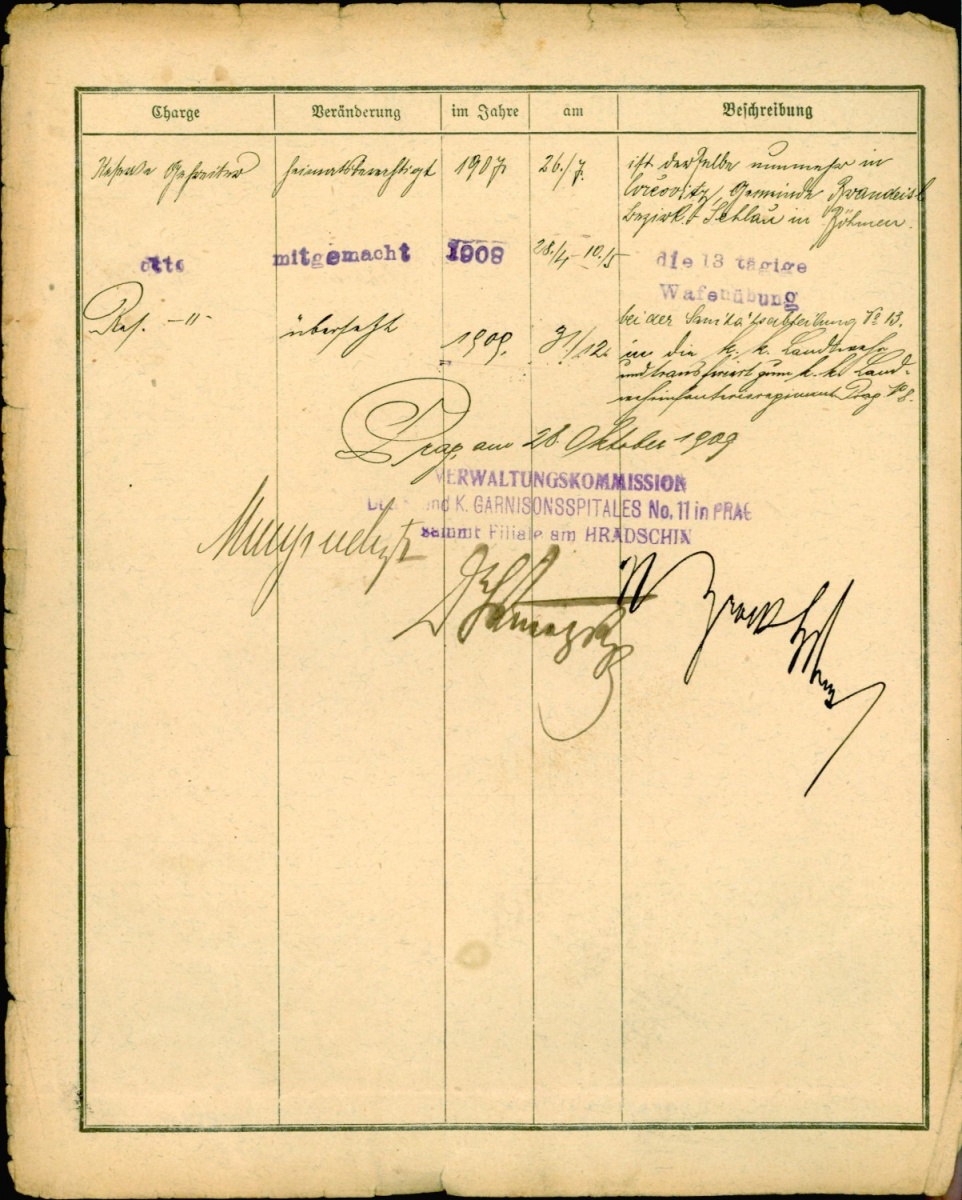 Charge Veränderung im Jahre am Beschreibung
Reserve Gefreiter heimatsberechtigt 1907 26./7. ist derselbe nunmehr in
Gemeinde Brandeisl
Bezirk Schlan in Böhmen.
dtto mitgemacht 1908 28./4 - 10./5 die 13 tägige
Wafenübung
bei der Sanitätsabteilung No 13.
Res. -"- übersetzt 1909. 31/12. in die k. k. Landwehr
und transferiert zum k. k. Land-
wehrinfanterieregiment Prag No 8.
Prag, am 28. Oktober 1909
VERWALTUNGSKOMMISSION
und K. GARNISONSSPITALES No. 11 in PRAG
sammt Filiale am HRADSCHIN